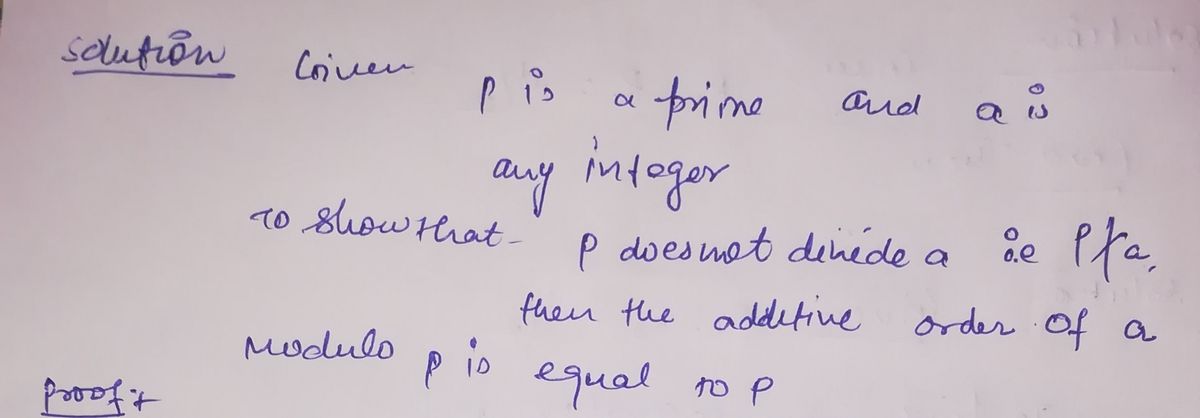 Solution Given p is a prime and a is
any integer
To show that - p does not devide a i.e p∤a,
then the additive order of a
Modulo p is equal to p
Proof :-